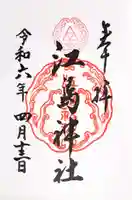 奉拝
江島神社
令和六年 四月十三日